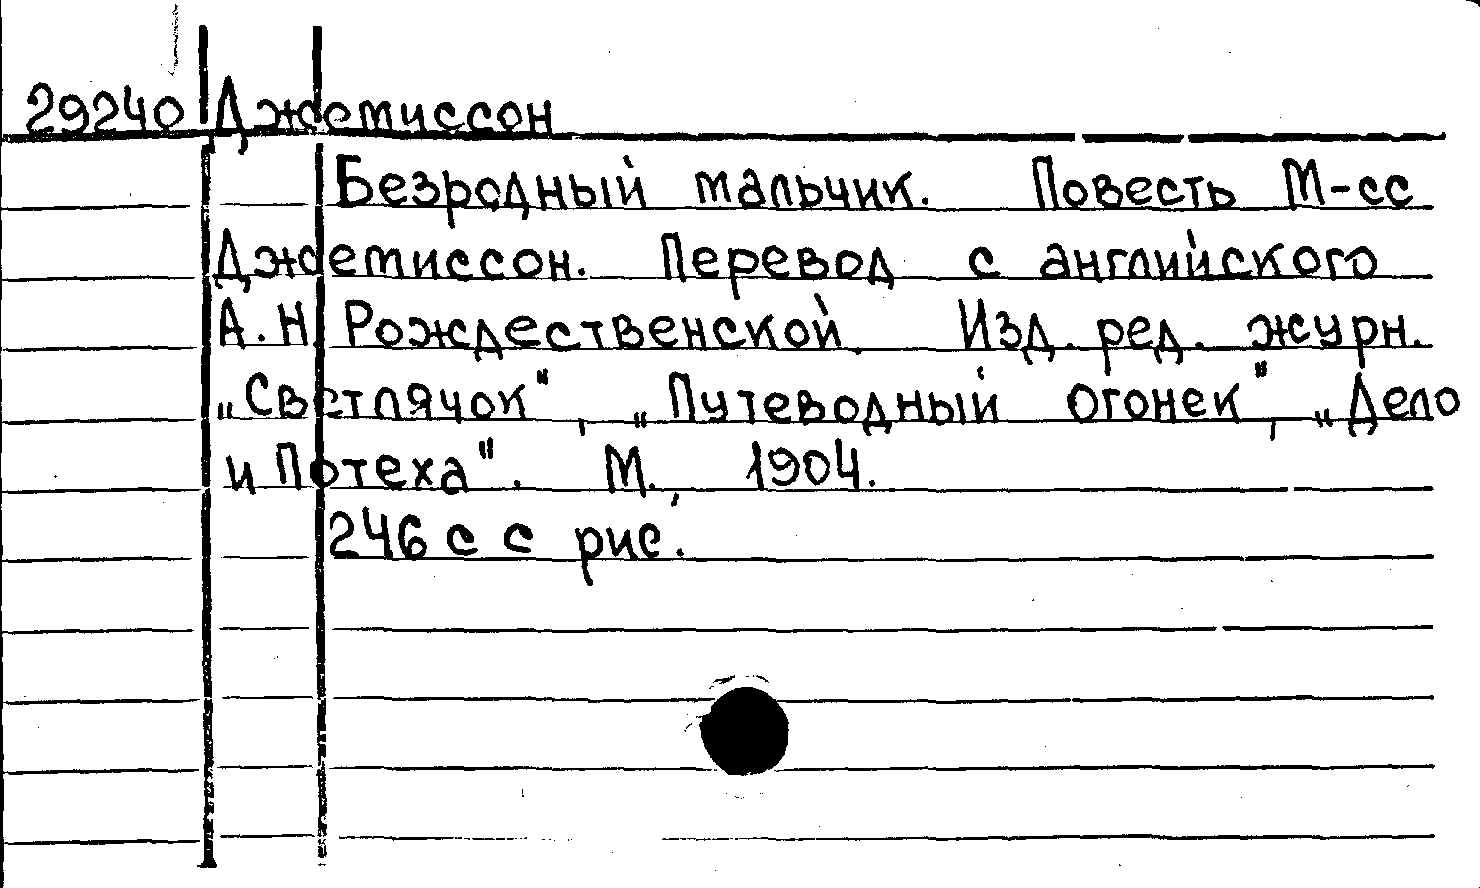 29240 Джемиссон
Безродный мальчик. Повесть М-сс
Джемиссон. Перевод с английского
А.Н. Рождественской. Изд. ред. журн.
„Светлячок", „Путеводный огонек", „Дело
и Потеха". М., 1904.
246 с с рис.